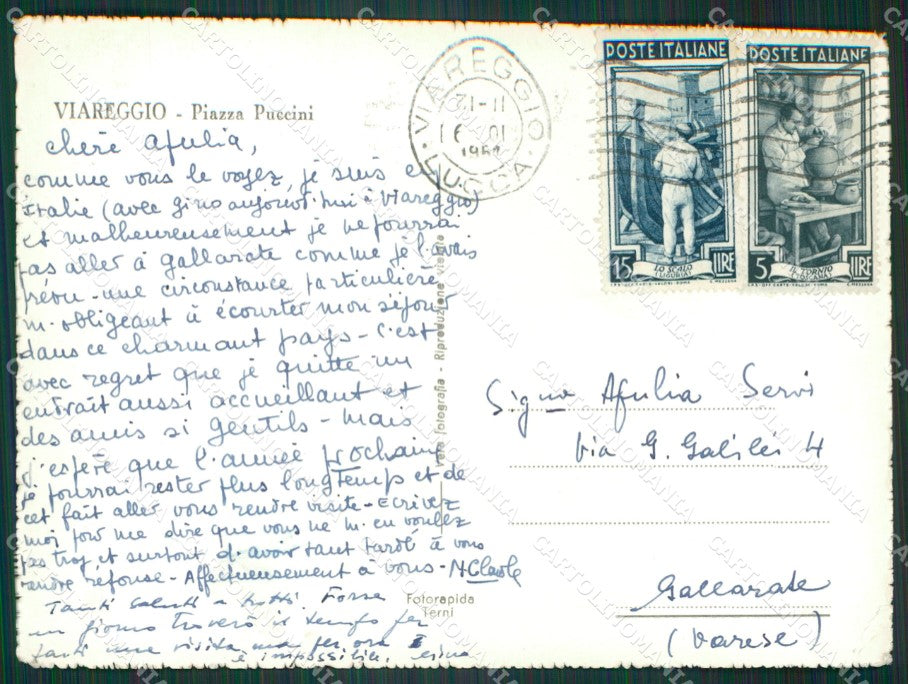 VIAREGGIO - Piazza Puccini
chère Afulia,
comme vous le voyez, je suis en
Italie (avec gino aujourd'hui à Viareggio)
et malheureusement je ne pourrai
pas aller à gallarate comme je l'avais
prévu - une circonstance particulière
m'obligeant à écourter mon séjour
dans ce charmant pays - C'est
avec regret que je quitte un
endroit aussi accueillant et
des amis si gentils - mais
j'espère que l'année prochaine
je pourrai rester plus longtemps et de
cet fait aller vous rendre visite - Ecrivez
moi pour me dire que vous ne m'en voulez
pas trop et surtout d'avoir tant tardé à vous
rendre réponse - Affectueusement à vous -
Tanti saluti a tutti. Forse
un giorno troverò il tempo per
farti una visita ma per ora
è impossibile.
Vera fotografia - Riproduzione vietata
Fotorapida
Terni
VIAREGGIO
LUCCA
POSTE ITALIANE
15 LIRE
LO SCALO
LIGURIA
POSTE ITALIANE
5 LIRE
IL TORNIO
Signa Afulia Servi
Via G. Galilei 4
Gallarate
(Varese)
CARTOLINOMANIA